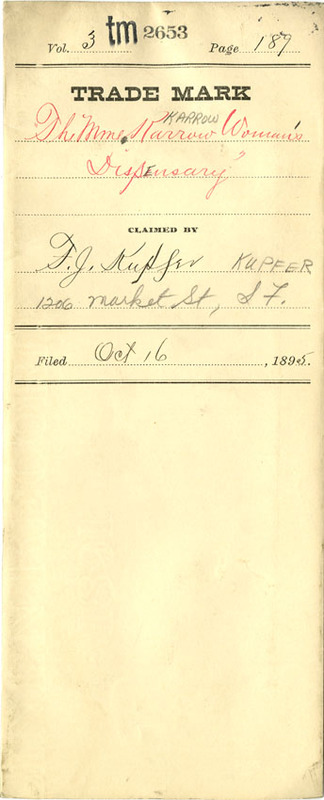 Vol. 3 tm 2653 Page 189
TRADE MARK
KARROW
"The Mme. Karrow Woman's
Dispensary"
CLAIMED BY
F. J. Kupfer KUPFER
1206 Market St, S F.
Filed Oct 16, 1895.